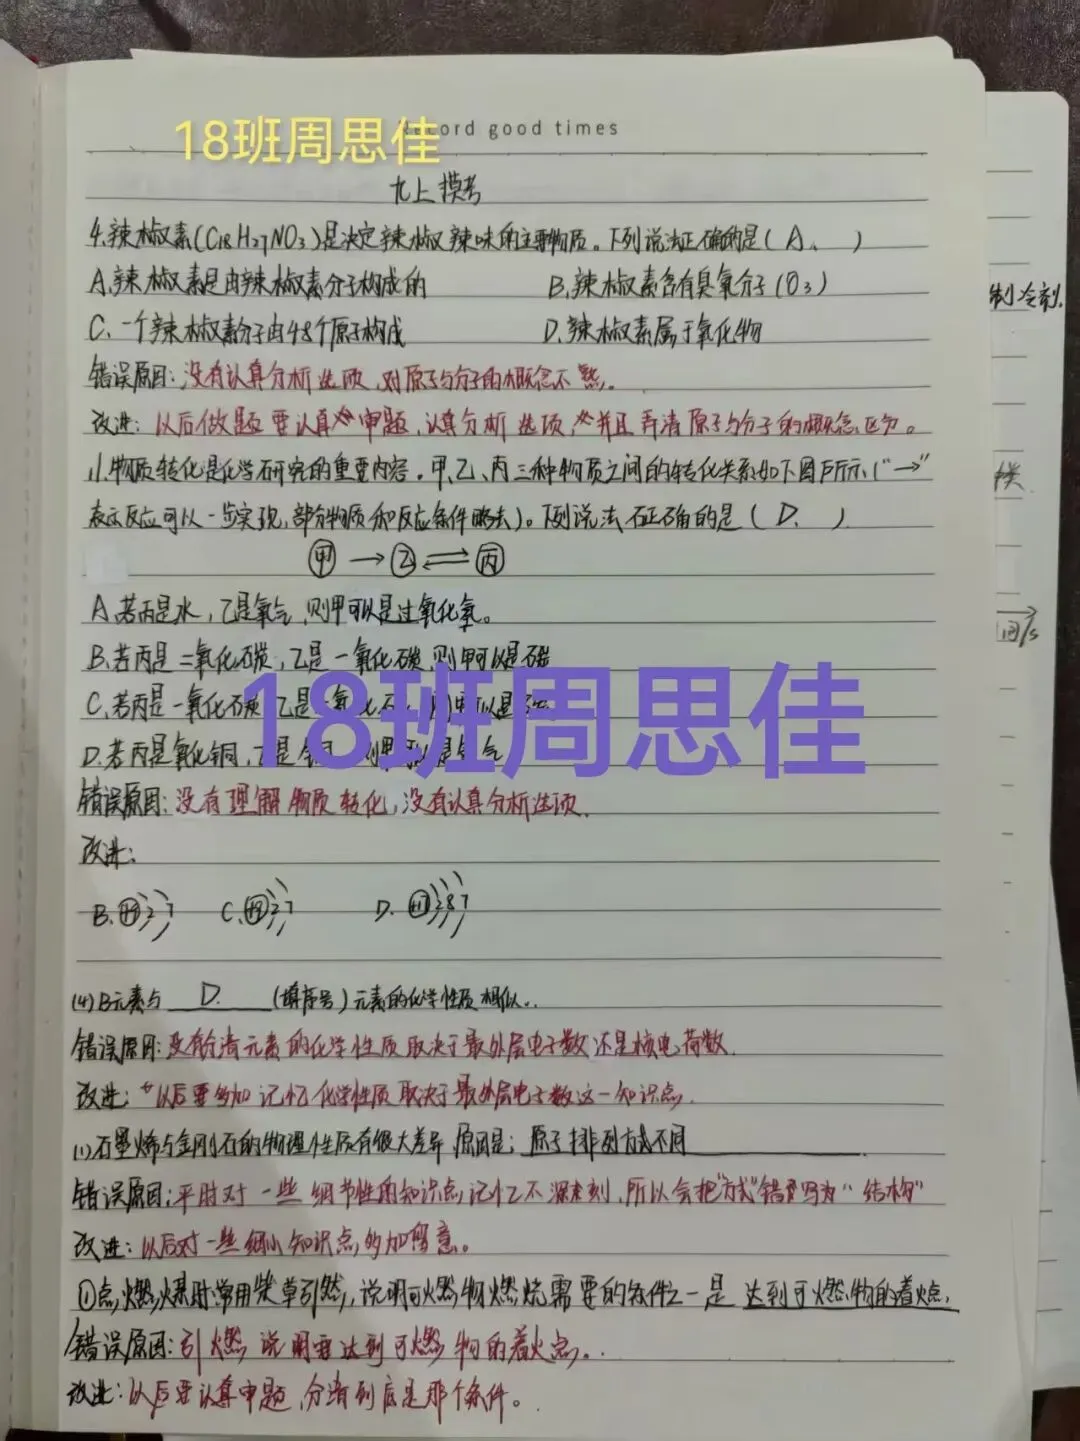 Record good times
18班周思佳
九上模考
4.辣椒素(C18H27NO3)是决定辣椒辣味的主要物质。下列说法正确的是(A、)
A.辣椒素是由辣椒素分子构成的 B.辣椒素含有臭氧分子(O3)
C.一个辣椒素分子由48个原子构成 D.辣椒素属于氧化物
错误原因:没有认真分析选项,对原子与分子的概念不熟。
改进:以后做题要认真审题,认真分析选项,并且弄清原子与分子的概念区分。
11.物质转化是化学研究的重要内容。甲、乙、丙三种物质之间的转化关系如下图所示("→"
表示反应可以一步实现,部分物质和反应条件略去)。下列说法不正确的是(D.)
甲→乙⇌丙
A.若丙是水,乙是氧气,则甲可以是过氧化氢。
B.若丙是二氧化碳,乙是一氧化碳,则甲可以是碳
C.若丙是一氧化碳,乙是
18班周思佳
D.若丙是氧化铜,乙是
错误原因:没有理解物质转化,没有认真分析选项.
改进:
B. 2 7 C. 2 7 D. 2 8 7
(4)B元素与 D. (填序号)元素的化学性质相似..
错误原因:没有分清元素的化学性质取决于最外层电子数还是核电荷数.
改进:以后要多加记忆化学性质取决于最外层电子数这一知识点.
(1)石墨烯与金刚石的物理性质有很大差异 原因是:原子排列方式不同
错误原因:平时对一些细节性的知识点记忆不深刻,所以会把"方式"错写为"结构"
改进:以后对一些细小知识点多加留意。
①点燃煤时常用柴草引燃,说明可燃物燃烧需要的条件之一是 达到可燃物的着火点.
错误原因:引燃 说明要达到可燃物的着火点。
改进:以后要认真审题,分清到底是那个条件。
制冷剂.
类